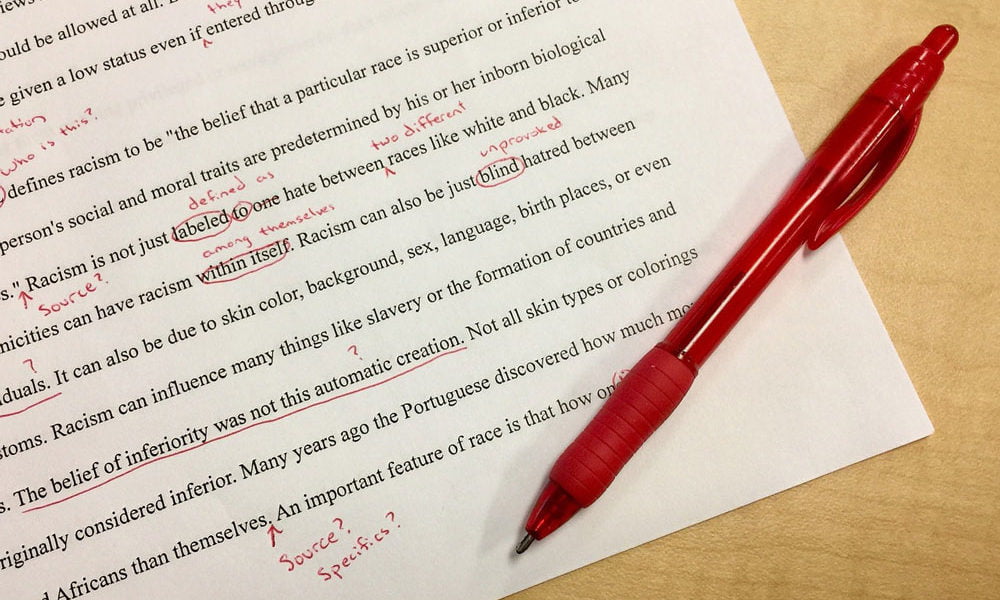 they
ould be allowed at all.
e given a low status even if entered throug
who is this?
defines racism to be "the belief that a particular race is superior or inferior to
person's social and moral traits are predetermined by his or her inborn biological
two different
unprovoked
defined as
s." Racism is not just labeled to one hate between races like white and black. Many
Source?
among themselves
nicities can have racism within itself. Racism can also be just blind hatred between
?
duals. It can also be due to skin color, background, sex, language, birth places, or even
stoms. Racism can influence many things like slavery or the formation of countries and
?
s. The belief of inferiority was not this automatic creation. Not all skin types or colorings
riginally considered inferior. Many years ago the Portuguese discovered how much mo
d Africans than themselves. An important feature of race is that how on
Source?
Specifics?